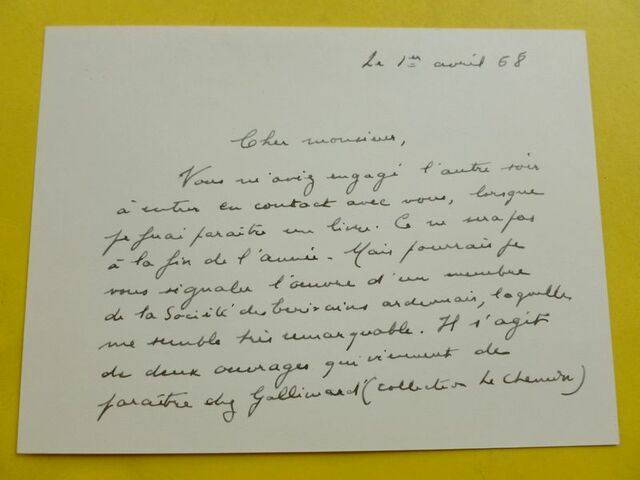 Le 1er avril 68
Cher monsieur,
Vous m'aviez engagé l'autre soir
à entrer en contact avec vous, lorsque
je ferai paraître un livre. Ce ne sera pas
à la fin de l'année. Mais pourrais je
vous signaler l'œuvre d'un membre
de la Société des écrivains ardennais, laquelle
me semble très remarquable. Il s'agit
de deux ouvrages qui viennent de
paraître chez Gallimard (collection Le Chemin)